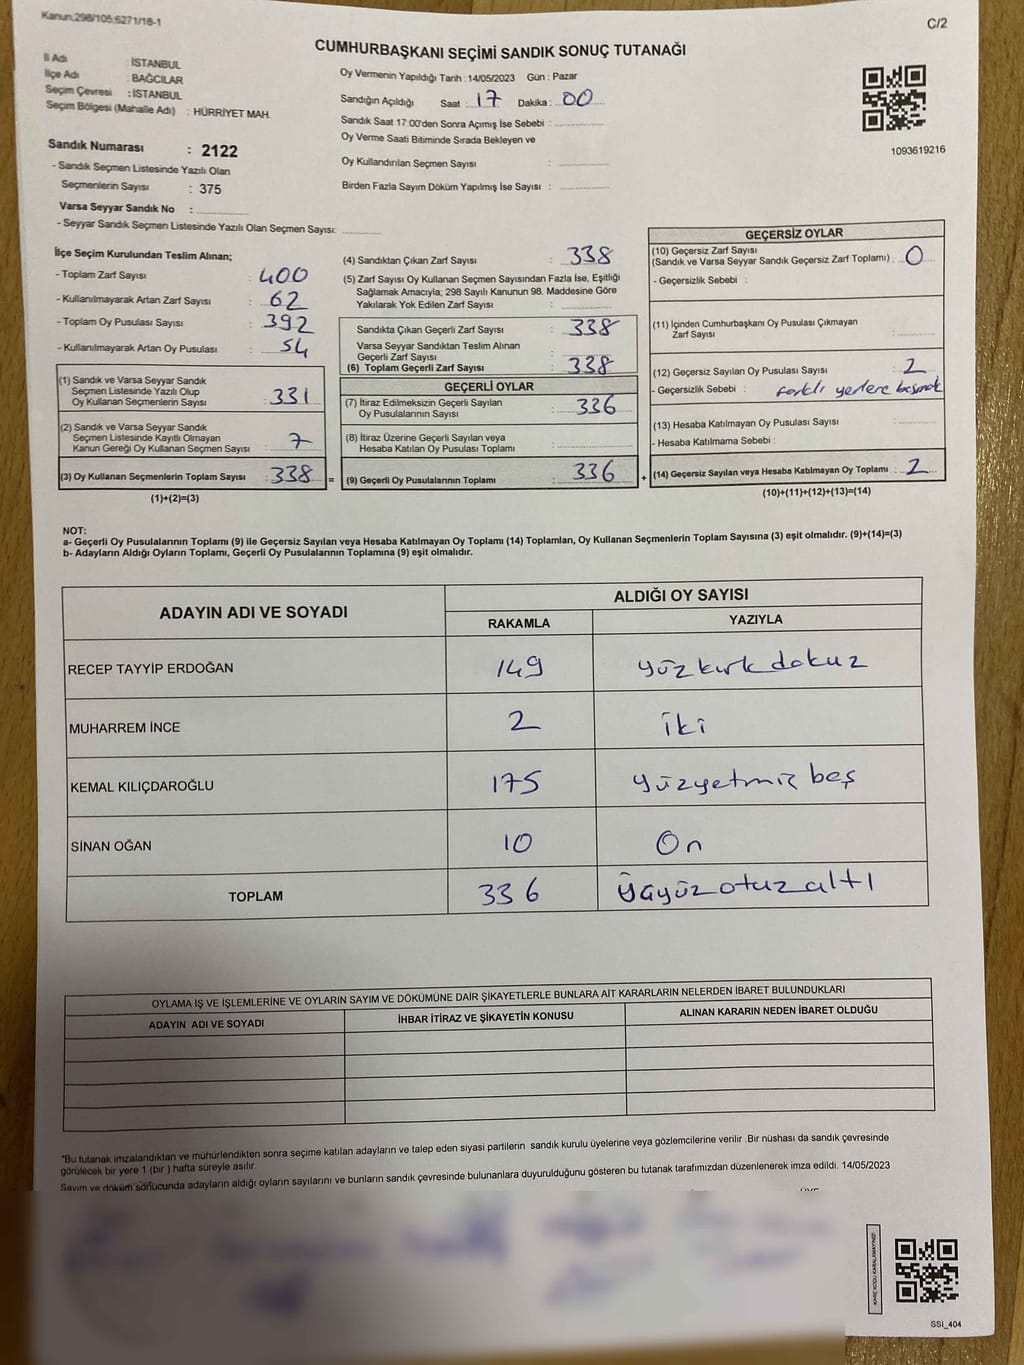 Kanun;298/105;6271/18-1
C/2
CUMHURBAŞKANI SEÇİMİ SANDIK SONUÇ TUTANAĞI
İl Adı : İSTANBUL
İlçe Adı : BAĞCILAR
Seçim Çevresi : İSTANBUL
Seçim Bölgesi (Mahalle Adı) : HÜRRİYET MAH.
Sandık Numarası : 2122
- Sandık Seçmen Listesinde Yazılı Olan
Seçmenlerin Sayısı : 375
Varsa Seyyar Sandık No :
- Seyyar Sandık Seçmen Listesinde Yazılı Olan Seçmen Sayısı:
Oy Vermenin Yapıldığı Tarih : 14/05/2023 Gün : Pazar
Sandığın Açıldığı Saat : 17 Dakika : 00
Sandık Saat 17:00'den Sonra Açımış İse Sebebi :
Oy Verme Saati Bitiminde Sırada Bekleyen ve
Oy Kullandırılan Seçmen Sayısı :
Birden Fazla Sayım Döküm Yapılmış İse Sayısı :
1093619216
İlçe Seçim Kurulundan Teslim Alınan;
- Toplam Zarf Sayısı : 400
- Kullanılmayarak Artan Zarf Sayısı : 62
- Toplam Oy Pusulası Sayısı : 392
- Kullanılmayarak Artan Oy Pusulası : 54
(1) Sandık ve Varsa Seyyar Sandık
Seçmen Listesinde Yazılı Olup
Oy Kullanan Seçmenlerin Sayısı : 331
(2) Sandık ve Varsa Seyyar Sandık
Seçmen Listesinde Kayıtlı Olmayan
Kanun Gereği Oy Kullanan Seçmen Sayısı : 7
(3) Oy Kullanan Seçmenlerin Toplam Sayısı : 338 =
(1)+(2)=(3)
(4) Sandıktan Çıkan Zarf Sayısı : 338
(5) Zarf Sayısı Oy Kullanan Seçmen Sayısından Fazla İse, Eşitliği
Sağlamak Amacıyla; 298 Sayılı Kanunun 98. Maddesine Göre
Yakılarak Yok Edilen Zarf Sayısı :
Sandıkta Çıkan Geçerli Zarf Sayısı : 338
Varsa Seyyar Sandıktan Teslim Alınan
Geçerli Zarf Sayısı :
(6) Toplam Geçerli Zarf Sayısı : 338
GEÇERLİ OYLAR
(7) İtiraz Edilmeksizin Geçerli Sayılan
Oy Pusulalarının Sayısı : 336
(8) İtiraz Üzerine Geçerli Sayılan veya
Hesaba Katılan Oy Pusulası Toplamı :
(9) Geçerli Oy Pusulalarının Toplamı : 336 +
GEÇERSİZ OYLAR
(10) Geçersiz Zarf Sayısı
(Sandık ve Varsa Seyyar Sandık Geçersiz Zarf Toplamı) : 0
- Geçersizlik Sebebi :
(11) İçinden Cumhurbaşkanı Oy Pusulası Çıkmayan
Zarf Sayısı :
(12) Geçersiz Sayılan Oy Pusulası Sayısı : 2
- Geçersizlik Sebebi : farklı yerlere basmak
(13) Hesaba Katılmayan Oy Pusulası Sayısı :
- Hesaba Katılmama Sebebi :
(14) Geçersiz Sayılan veya Hesaba Katılmayan Oy Toplamı : 2
(10)+(11)+(12)+(13)=(14)
NOT:
a- Geçerli Oy Pusulalarının Toplamı (9) ile Geçersiz Sayılan veya Hesaba Katılmayan Oy Toplamı (14) Toplamları, Oy Kullanan Seçmenlerin Toplam Sayısına (3) eşit olmalıdır. (9)+(14)=(3)
b- Adayların Aldığı Oyların Toplamı, Geçerli Oy Pusulalarının Toplamına (9) eşit olmalıdır.
ADAYIN ADI VE SOYADI ALDIĞI OY SAYISI
RAKAMLA YAZIYLA
RECEP TAYYİP ERDOĞAN 149 yüzkırkdokuz
MUHARREM İNCE 2 iki
KEMAL KILIÇDAROĞLU 175 yüzyetmiş beş
SİNAN OĞAN 10 On
TOPLAM 336 Üçyüzotuzaltı
OYLAMA İŞ VE İŞLEMLERİNE VE OYLARIN SAYIM VE DÖKÜMÜNE DAİR ŞİKAYETLERLE BUNLARA AİT KARARLARIN NELERDEN İBARET BULUNDUKLARI
ADAYIN ADI VE SOYADI İHBAR İTİRAZ VE ŞİKAYETİN KONUSU ALINAN KARARIN NEDEN İBARET OLDUĞU
*Bu tutanak imzalandıktan ve mühürlendikten sonra seçime katılan adayların ve talep eden siyasi partilerin sandık kurulu üyelerine veya gözlemcilerine verilir .Bir nüshası da sandık çevresinde
görülecek bir yere 1 (bir ) hafta süreyle asılır.
Sayım ve döküm sonucunda adayların aldığı oyların sayılarını ve bunların sandık çevresinde bulunanlara duyurulduğunu gösteren bu tutanak tarafımızdan düzenlenerek imza edildi. 14/05/2023
KARE KODU KARALAMAYINIZ!
SSI_404